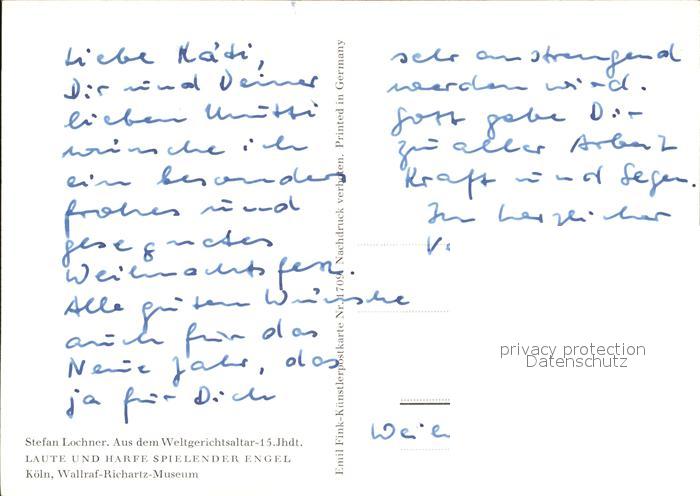 Liebe Käti,
Dir und Deiner
lieben Mutti
wünsche ich
ein besonders
frohes und
gesegnetes
Weihnachtsfest.
Alle guten Wünsche
auch für das
Neue Jahr, das
ja für Dich
Stefan Lochner. Aus dem Weltgerichtsaltar-15.Jhdt.
LAUTE UND HARFE SPIELENDER ENGEL
Köln, Wallraf-Richartz-Museum
Emil Fink-Künstlerpostkarte Nr. 1709. Nachdruck verboten. Printed in Germany
sehr anstrengend
werden wird.
Gott gebe Dir
zu aller Arbeit
Kraft und Segen.
In herzlicher
V.
privacy protection
Datenschutz
Weih